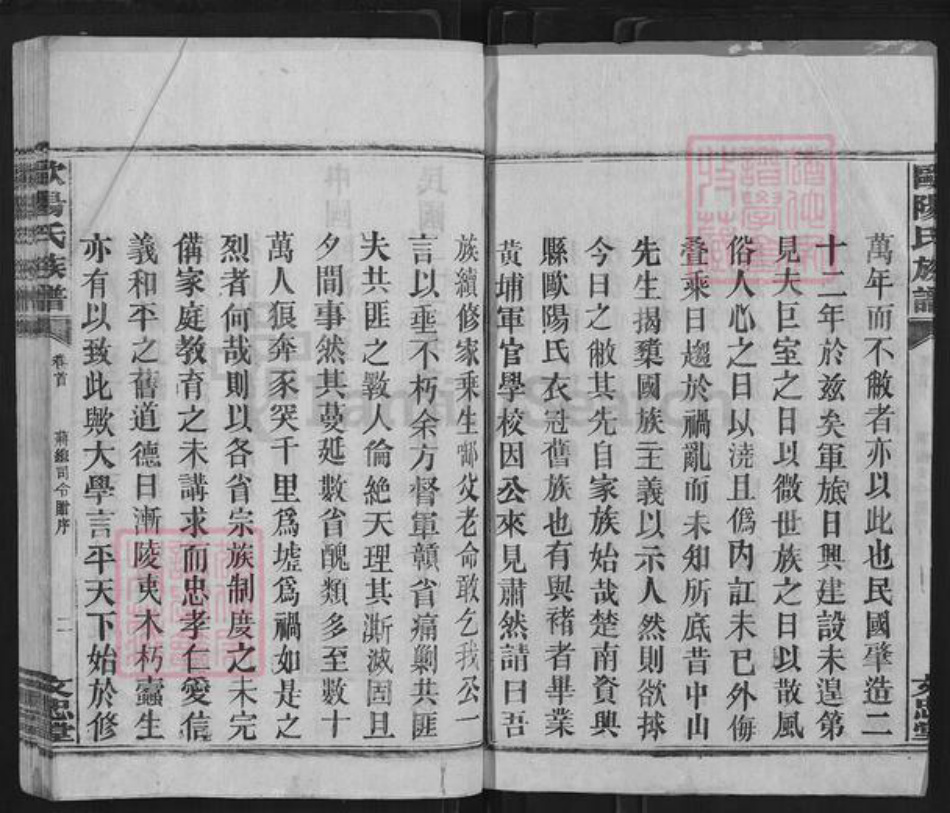 歐陽氏族譜
文忠堂
萬年而不敝者亦以此也民國肇造二
十二年於兹矣軍旅日興建設未遑第
見夫巨室之日以微世族之日以散風
俗人心之日以澆且僞內訌未已外侮
疊乘日趨於禍亂而未知所底昔中山
先生揭櫫國族主義以示人然則欲捄
今日之敝其先自家族始哉楚南資興
縣歐陽氏衣冠舊族也有與褚者畢業
黃埔軍官學校因公來見肅然請曰吾
族續修家乘生啣父老命敢乞我公一
言以垂不朽余方督軍贛省痛剿共匪
夫共匪之斁人倫絶天理其澌滅固旦
夕間事然其蔓延數省醜類多至數十
萬人狼奔豕突千里爲墟爲禍如是之
烈者何哉則以各省宗族制度之未完
備家庭教育之未講求而忠孝仁愛信
義和平之舊道德日漸陵夷木朽蠹生
亦有以致此歟大學言平天下始於修
歐陽氏族譜
卷首
蔣總司令贈序
二
文忠堂